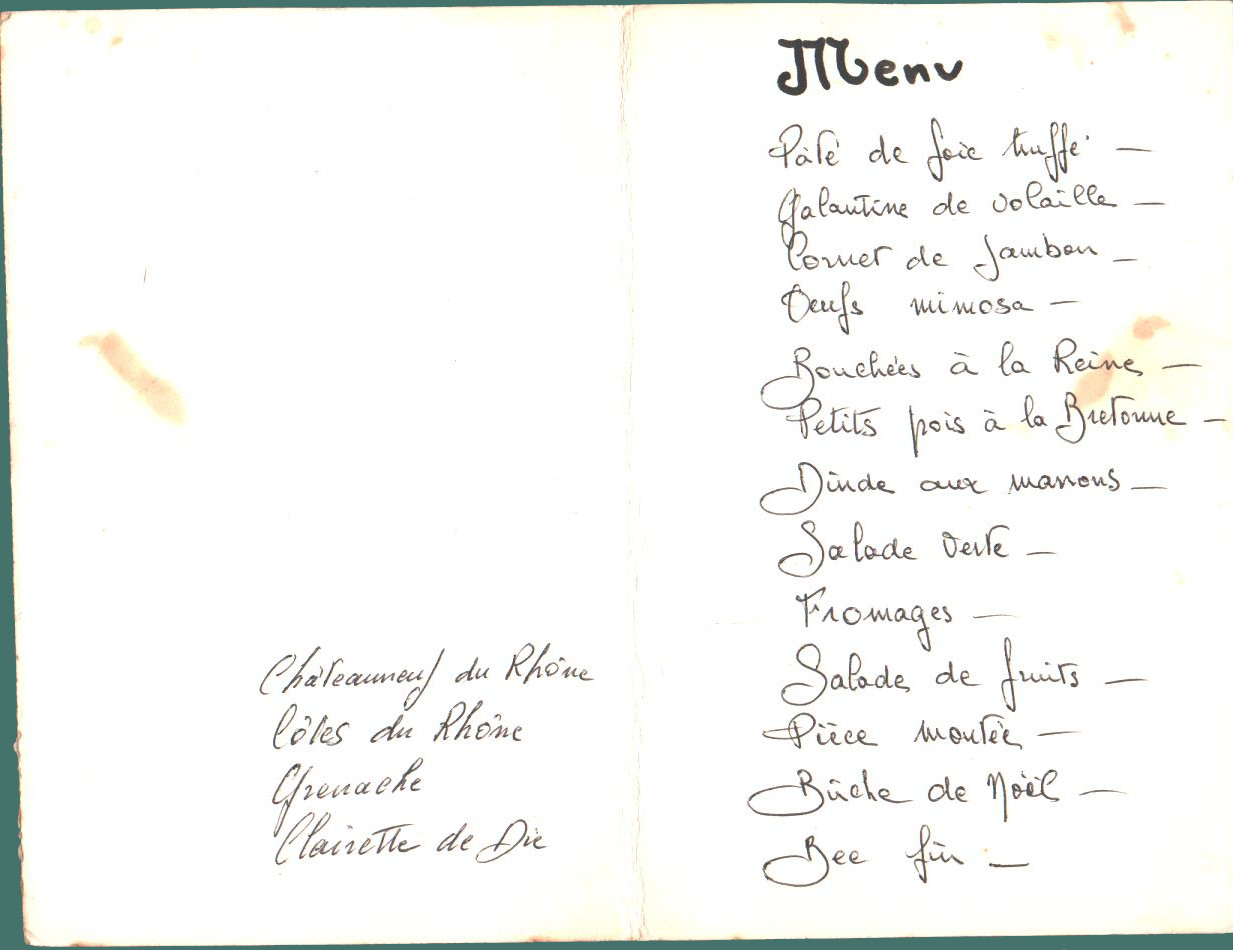 Châteauneuf du Rhône
Côtes du Rhône
Grenache
Clairette de Die
Menu
Pâté de foie truffé —
Galantine de volaille —
Cornet de Jambon —
Oeufs mimosa —
Bouchées à la Reine —
Petits pois à la Bretonne —
Dinde aux marrons —
Salade verte —
Fromages —
Salade de fruits —
Pièce montée —
Bûche de Noël —
Bec fin —